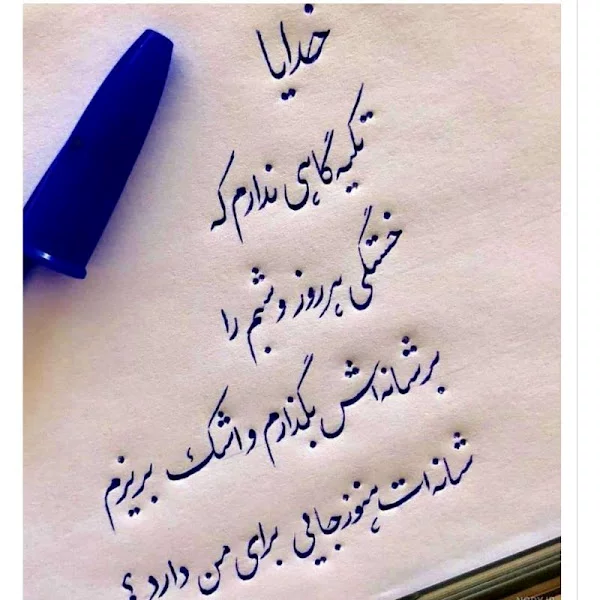 خدایا
تکیه گاهی ندارم که
خستگی هر روز و شبم را
بر شانه اش بگذارم و اشک بریزم
شانه ات هنوز جایی برای من دارد ؟